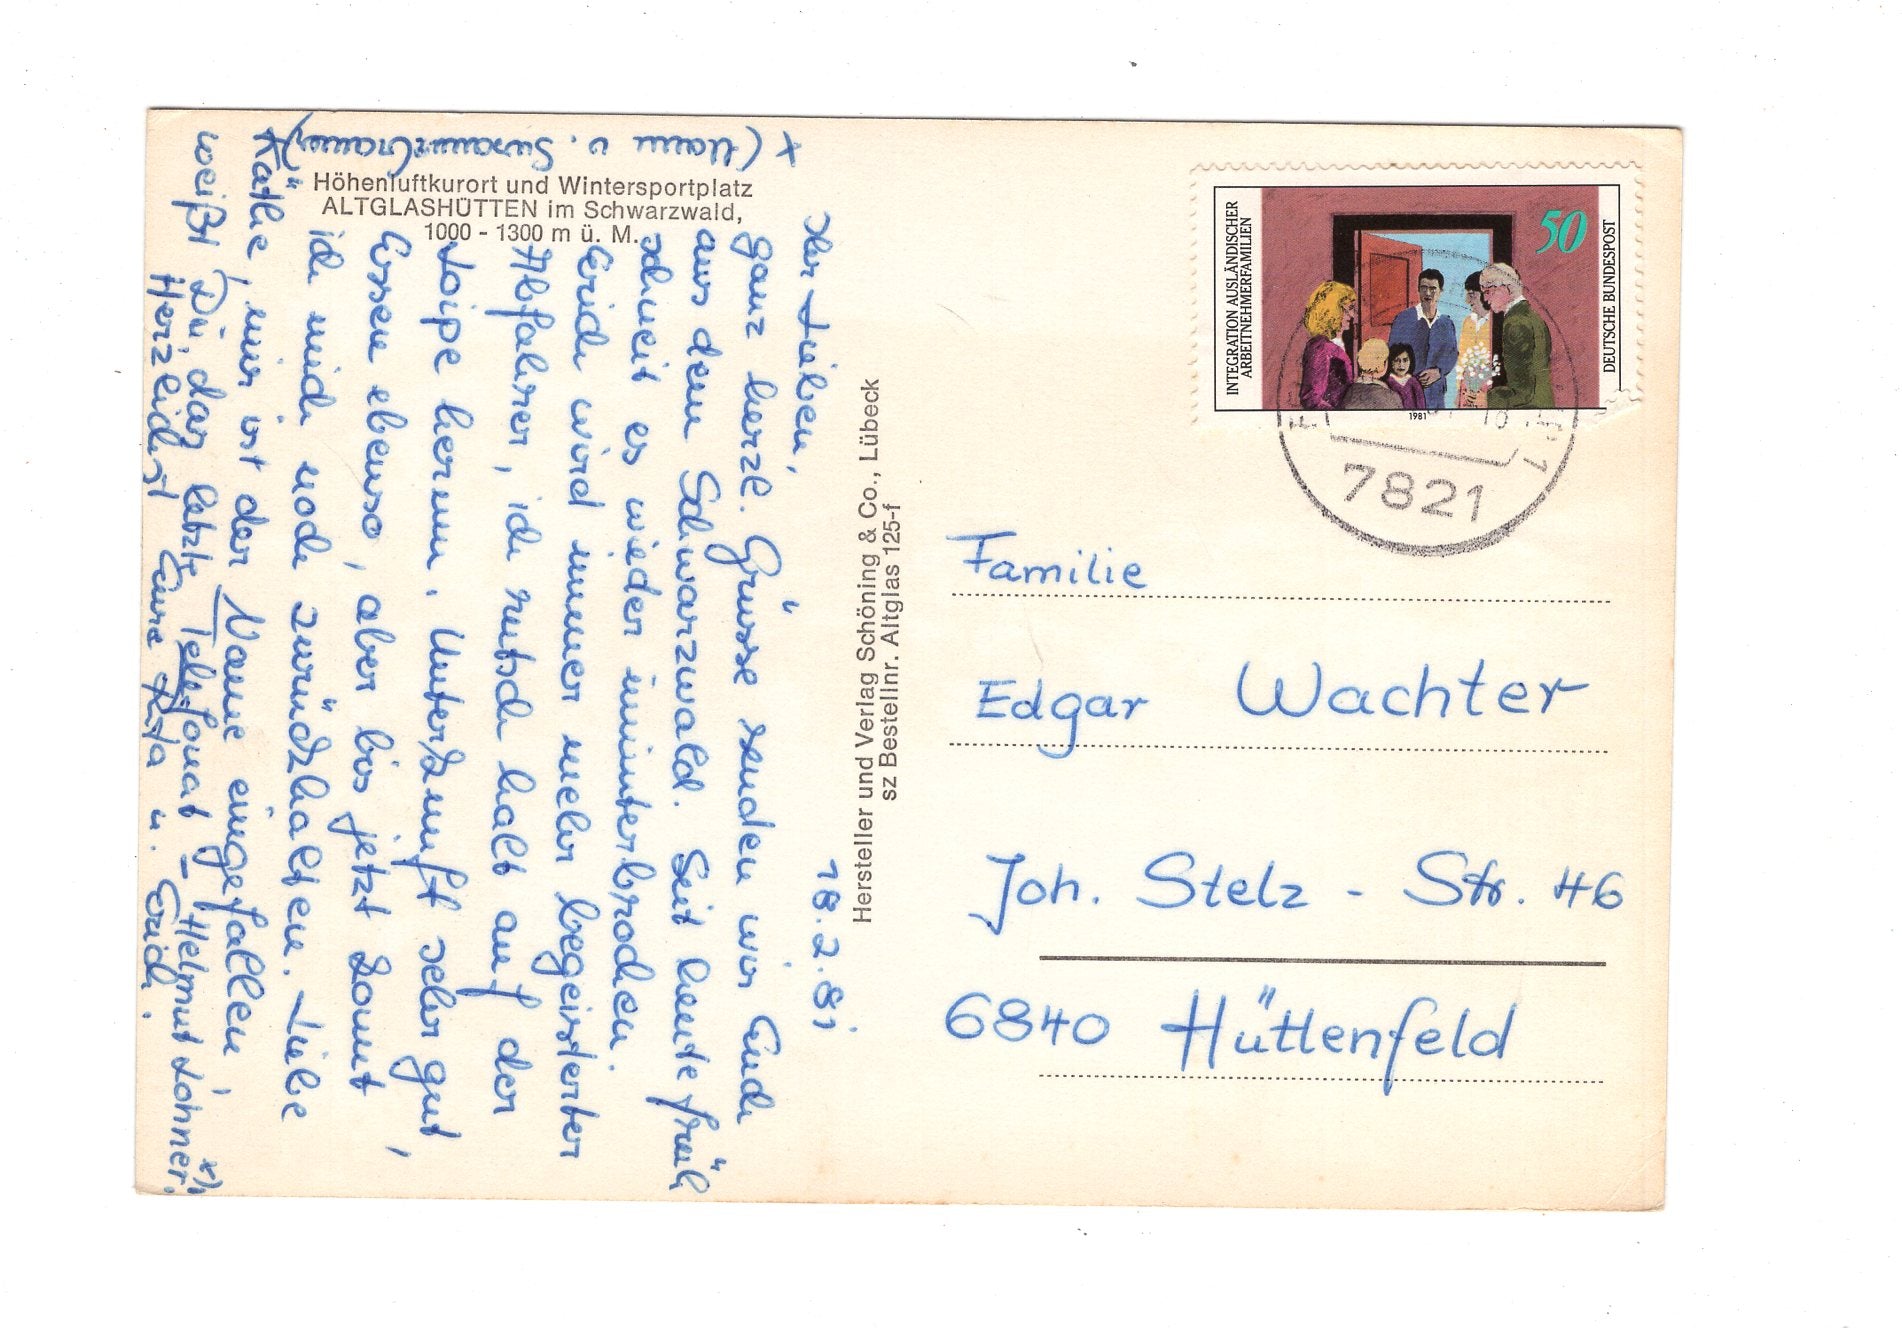 Höhenluftkurort und Wintersportplatz
ALTGLASHÜTTEN im Schwarzwald,
1000 - 1300 m ü. M.
18.2.81
Ihr Lieben,
ganz herzl. Grüsse senden wir Euch
aus dem Schwarzwald. Seit heute früh
schneit es wieder ununterbrochen.
Erich wird immer mehr begeisterter
Abfahrer, ich rutsch halt auf der
Loipe herum. Unterkunft sehr gut,
Essen ebenso, aber bis jetzt konnt
ich mich noch zurückhalten. Liebe
Käthe, mir ist der Name eingefallen,
weißt Du, das letzte Telefonat - Helmut Lohner. x)
Herzlichst Eure u. Erich.
x (Mann v. Susanne)
Hersteller und Verlag Schöning & Co., Lübeck
sz Bestellnr. Altglas 125-f
INTEGRATION AUSLÄNDISCHER
ARBEITNEHMERFAMILIEN
50
DEUTSCHE BUNDESPOST
1981
7821
Familie
Edgar Wachter
Joh. Stelz - Str. 46
6840 Hüttenfeld